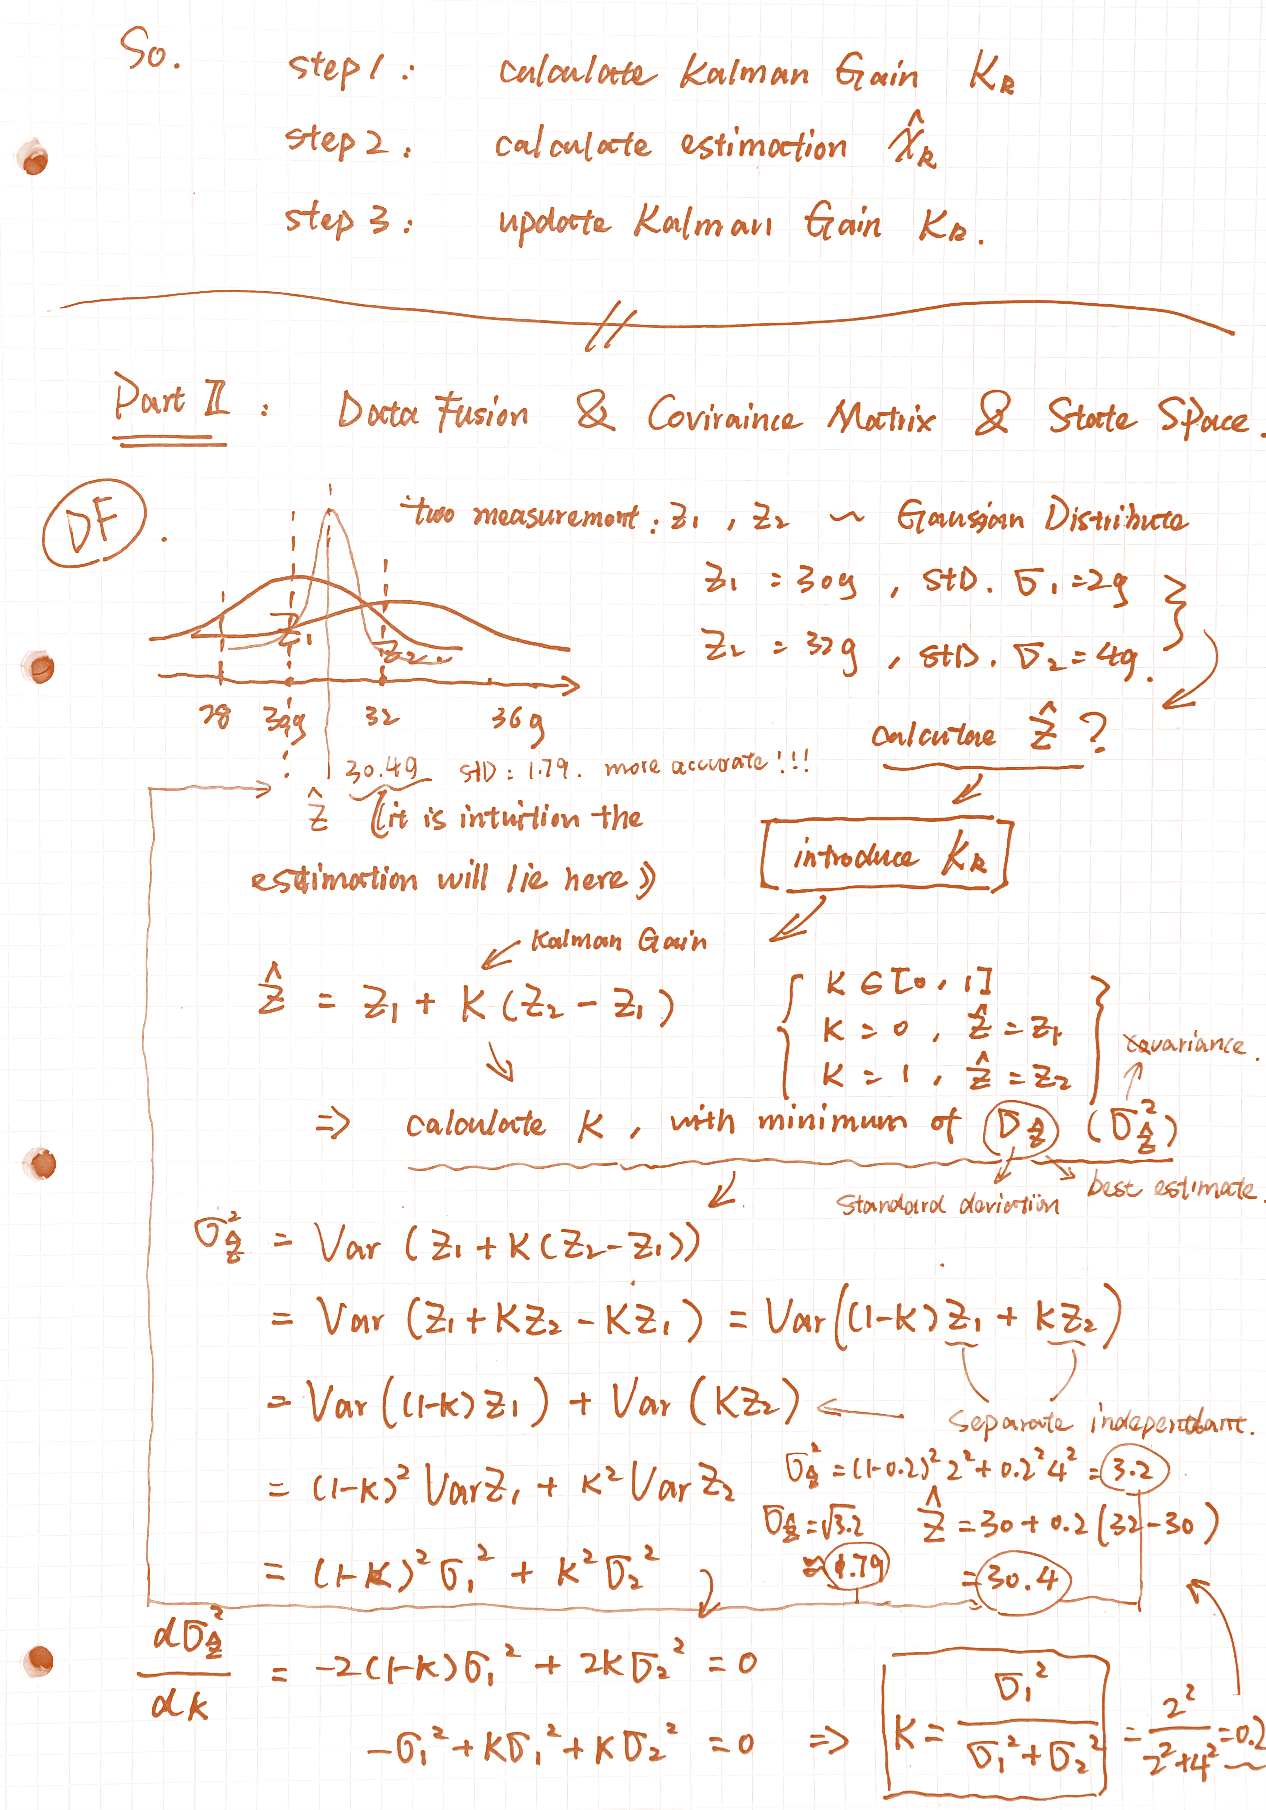 So.
step 1 : calculate Kalman Gain K_k
step 2 : calculate estimation X̂_k
step 3 : update Kalman Gain K_k.
Part II : Data Fusion & Coviraince Matrix & State Space.
DF.
two measurement : Z₁ , Z₂ ~ Gaussian Distribute
Z₁ = 30g , StD. σ₁ = 2g
Z₂ = 32g , StD. σ₂ = 4g.
Z₁
Z₂
28 30g 32 36g
calculate Ẑ ?
30.4g StD : 1.79. more accurate !!!
Ẑ (it is intuition the
estimation will lie here)
introduce K_k
Kalman Gain
Ẑ = Z₁ + K (Z₂ - Z₁)
K ∈ [0 , 1]
K = 0 , Ẑ = Z₁
K = 1 , Ẑ = Z₂
variance.
⇒ calculate K , with minimum of σ_Ẑ (σ_Ẑ²)
Standard deviation
best estimate.
σ_Ẑ² = Var (Z₁ + K(Z₂-Z₁))
= Var (Z₁ + KZ₂ - KZ₁) = Var((1-K)Z₁ + KZ₂)
= Var((1-K)Z₁) + Var(KZ₂)
separate independant.
= (1-K)² VarZ₁ + K² VarZ₂
σ_Ẑ² = (1-0.2)² 2² + 0.2² 4² = 3.2
σ_Ẑ = √3.2 Ẑ = 30 + 0.2 (32-30)
≈ 1.79 = 30.4
= (1-K)² σ₁² + K² σ₂²
dσ_Ẑ²/dK = -2(1-K)σ₁² + 2Kσ₂² = 0
-σ₁² + Kσ₁² + Kσ₂² = 0 ⇒ K = σ₁²/(σ₁² + σ₂²) = 2²/(2²+4²) = 0.2